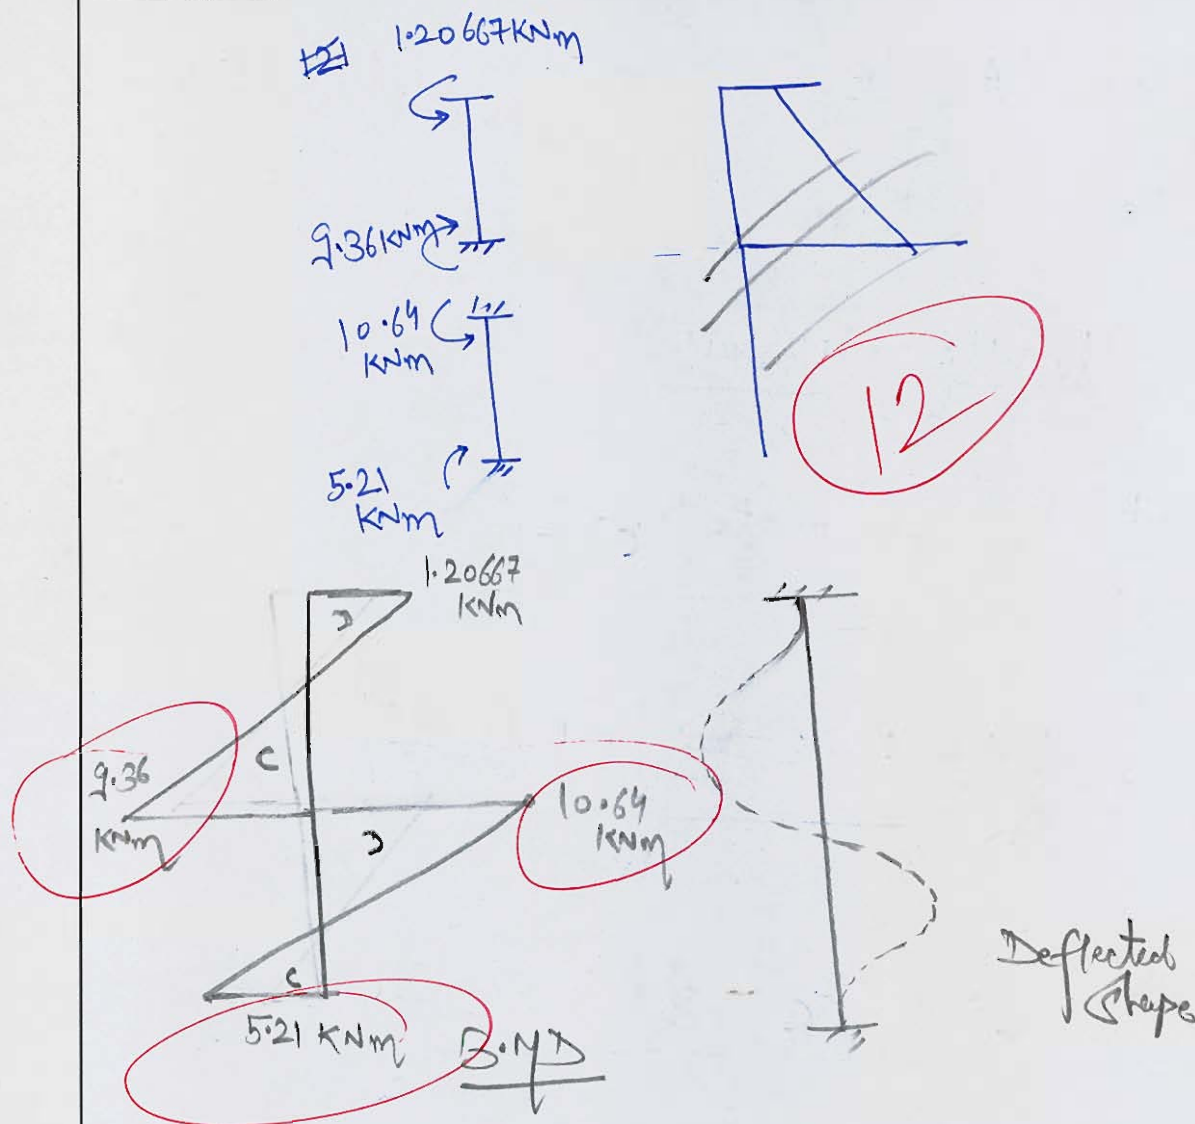 1.20667KNm
9.36KNm
10.64
KNm
5.21
KNm
12
1.20667
KNm
D
C
9.36
KNm
10.64
KNm
D
C
5.21 KNm
B.M.D
Deflected
Shape